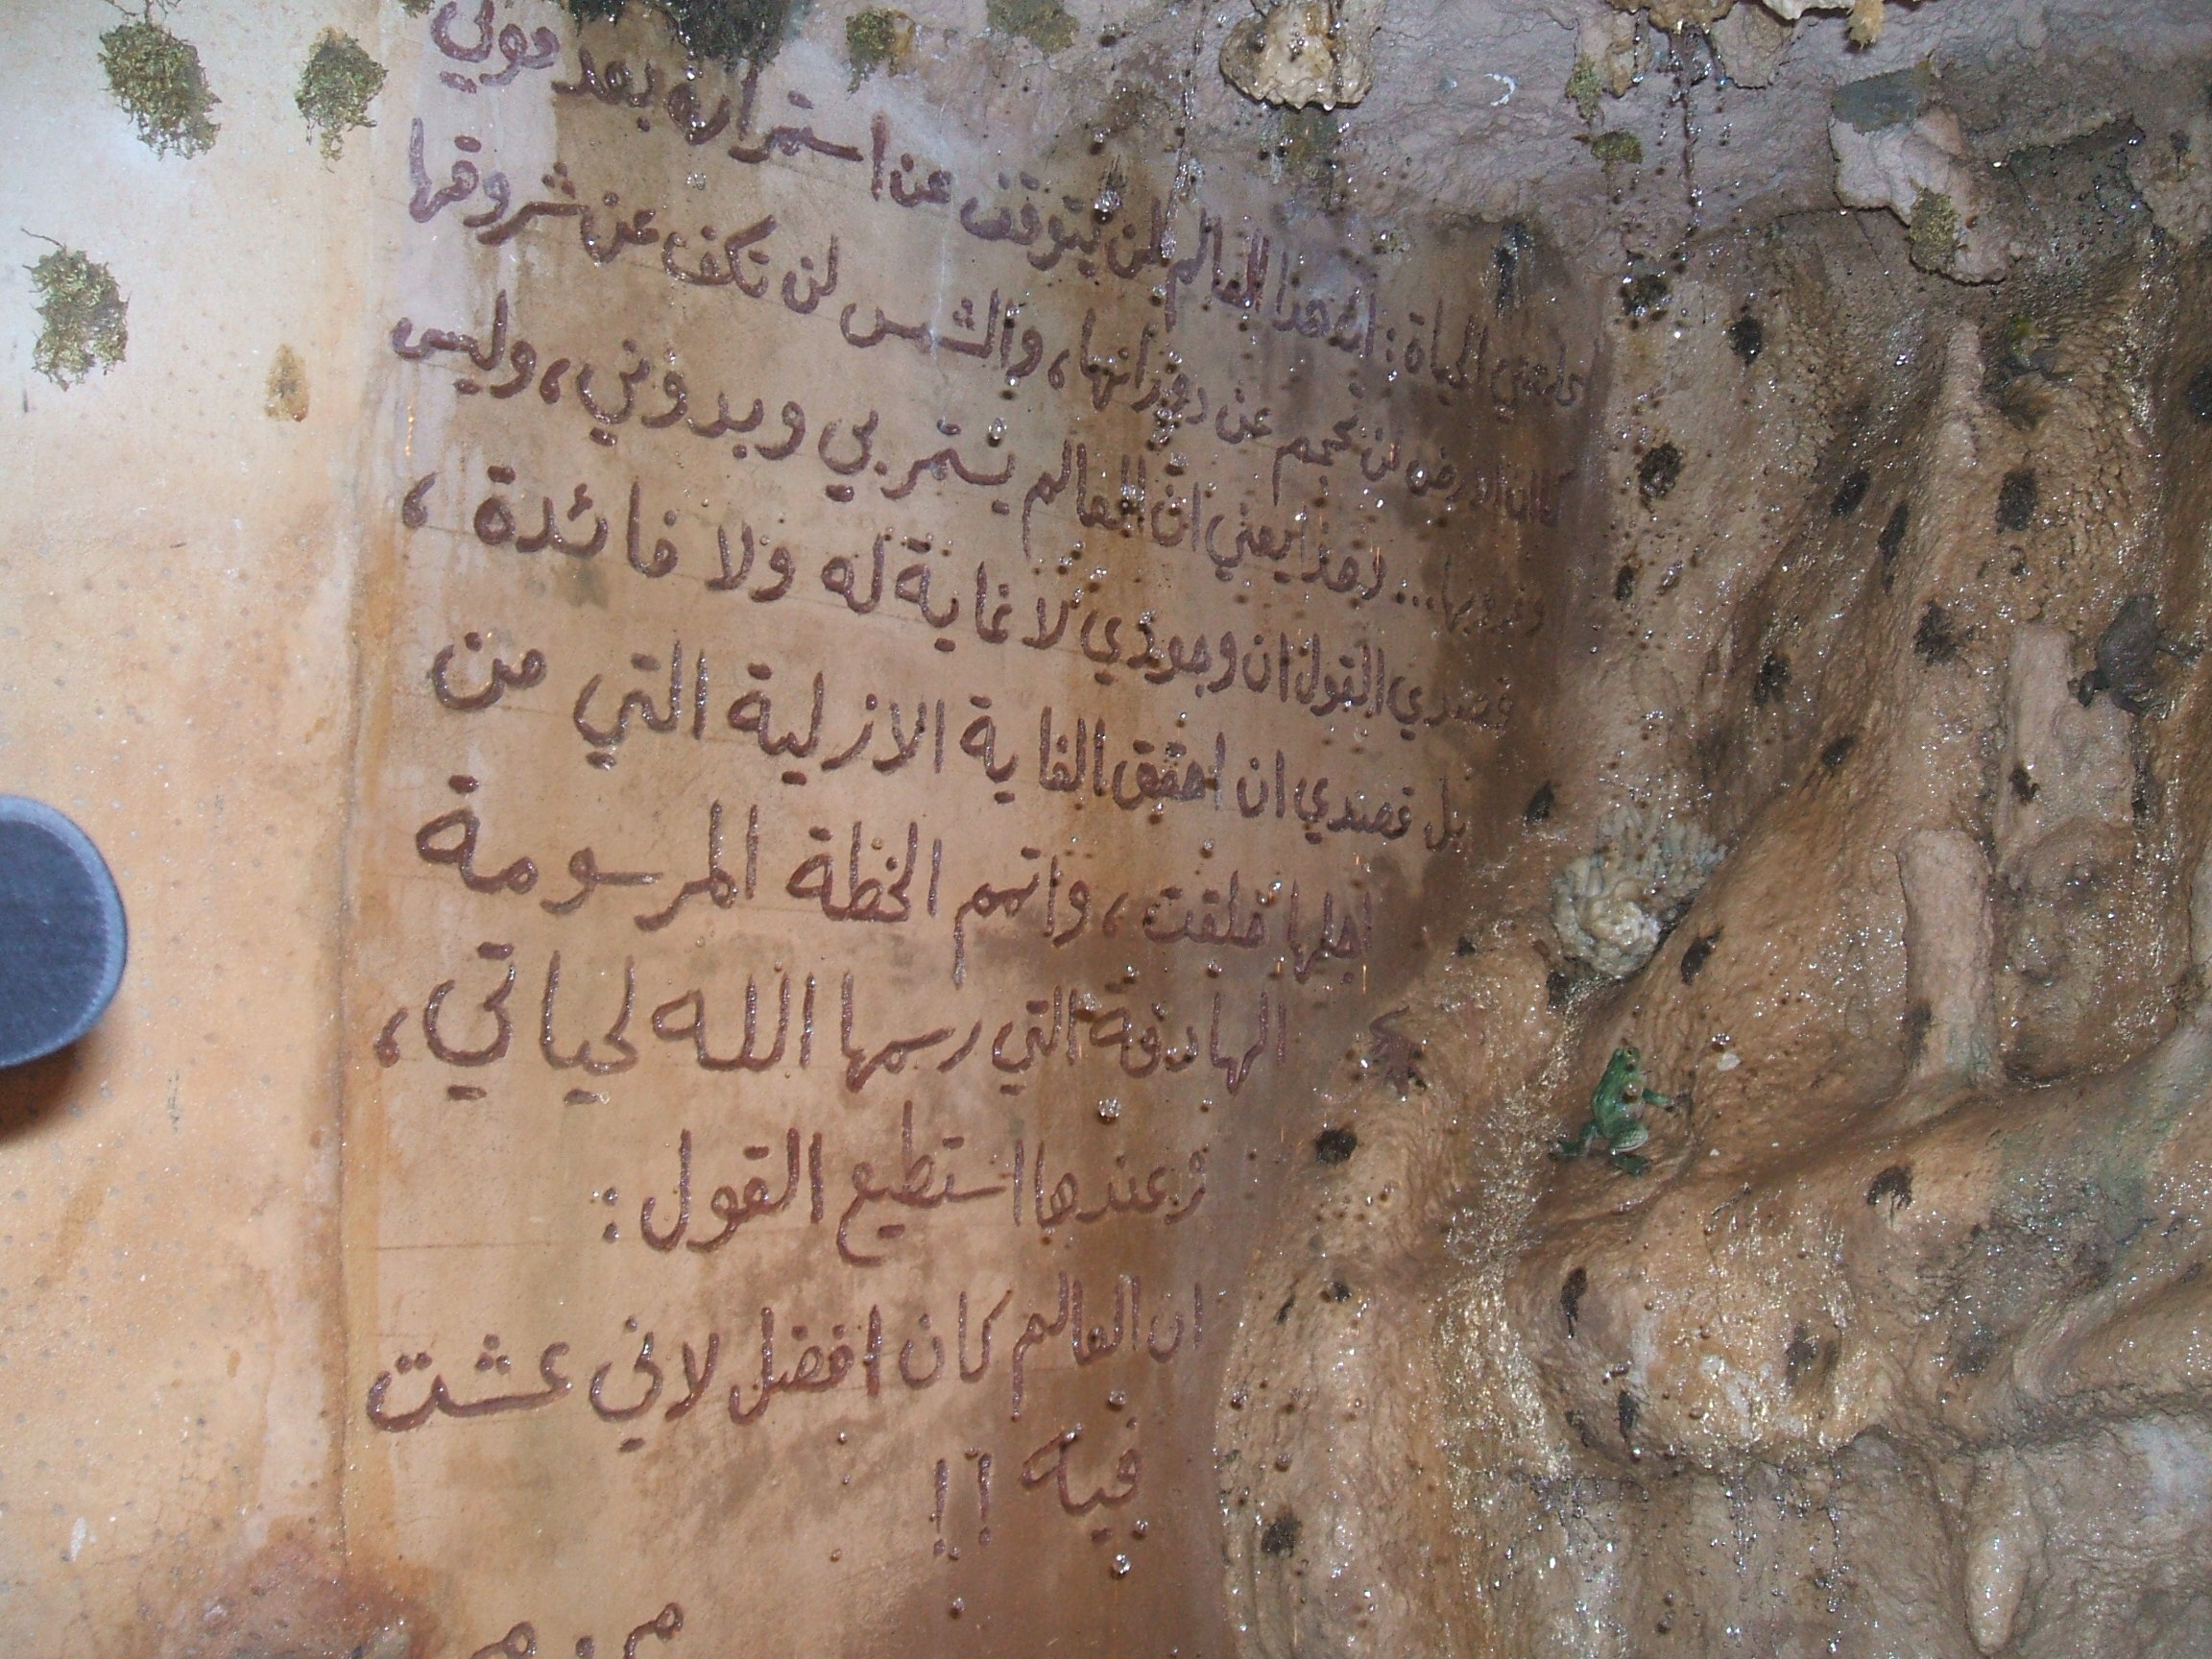 علمتني الحياة: ان هذا العالم لن يتوقف عن استمراره بعد موتي
كان الارض لن تحجم عن دورانها، والشمس لن تكف عن شروقها
وغروبها... وهذا يعني ان العالم يستمر بي وبدوني، وليس
قصدي القول ان وجودي لا غاية له ولا فائدة،
بل قصدي ان احقق الغاية الازلية التي من
اجلها خلقت، واتمم الخطة المرسومة
الهادفة التي رسمها الله لحياتي،
وعندها استطيع القول:
ان العالم كان افضل لاني عشت
فيه !!